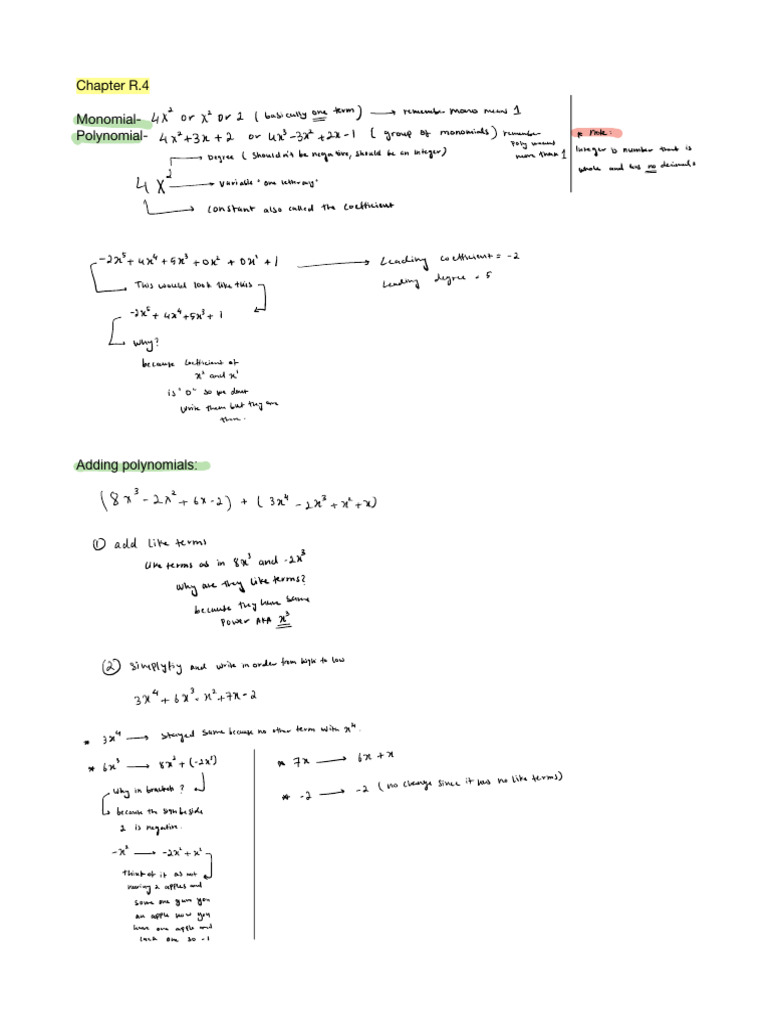 Chapter R.4
Monomial- 4x² or x² or 2 ( basically one term) → remember mono means 1
Polynomial- 4x²+3x+2 or 4x³-3x²+2x-1 ( group of monomials) remember
Poly means
more than 1
* Note:
Integer is number that is
whole and has no decimals
Degree ( shouldn't be negative, should be an integer)
4x² → Variable "one letter
constant also called the coefficient
-2x⁵+4x⁴+5x³+0x²+0x¹+1 → Leading coefficient = -2
Leading degree = 5
This would look like this
-2x⁵+4x⁴+5x³+1
Why?
because coefficient of
x² and x¹
is "0" so we dont
write them but they are
there.
Adding polynomials:
(8x³-2x²+6x-2) + (3x⁴-2x³+x²+x)
① add like terms
like terms as in 8x³ and -2x³
why are they like terms?
because they have same
Power AKA x³
② simplyfiy and write in order from high to low
3x⁴+6x³-x²+7x-2
* 3x⁴ → stayed same because no other term with x⁴.
* 6x³ → 8x³+(-2x³)
Why in brackets?
because the sign beside
2 is negative.
-x² → -2x²+x²
think of it as not
having 2 apples and
some one gives you
an apple now you
have one apple and
lack one so -1
* 7x → 6x+x
* -2 → -2 ( no change since it has no like terms)